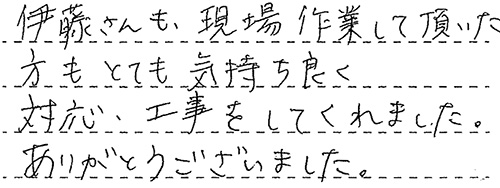 伊藤さんも、現場作業して頂いた
方もとても気持ち良く
対応、工事をしてくれました。
ありがとうございました。